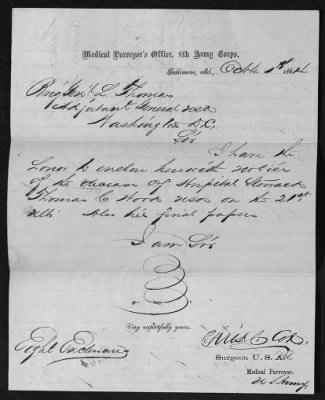 Medical Purveyor's Office, 8th Army Corps,
Baltimore, Md., Octo 1st 1864
Brig Genl L Thomas
Adjutant General USA
Washington D.C.
Sir
I have the
honor to enclose herewith notice
of the decease of Hospital Steward
Thomas C Wood USA on the 21st
ulto also his final papers
I am Sir
Very respectfully yours,
Eight Enclosures
Surgeon U. S. Vol
Medical Purveyor,
U S Army